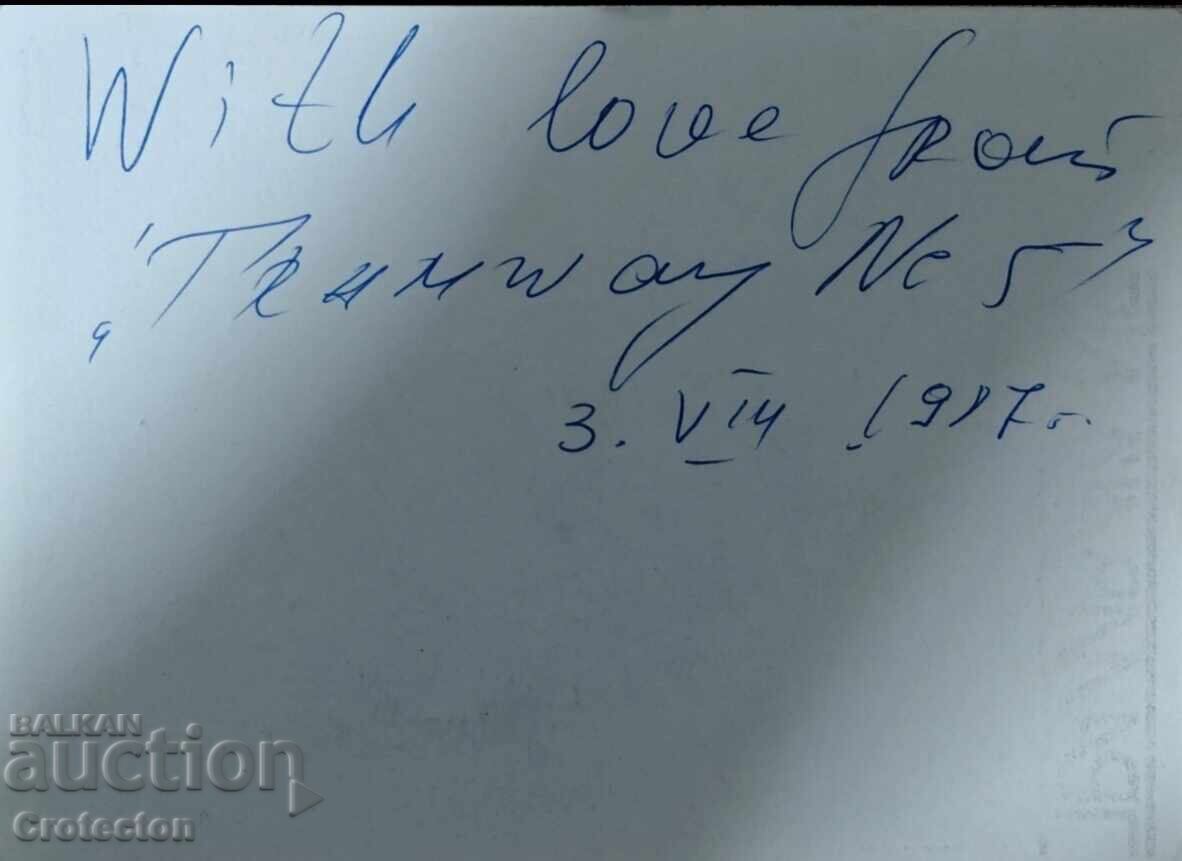 With love from
"Tramway № 5"
3. VIII. 1987 г.
BALKAN
auction
Crotecton